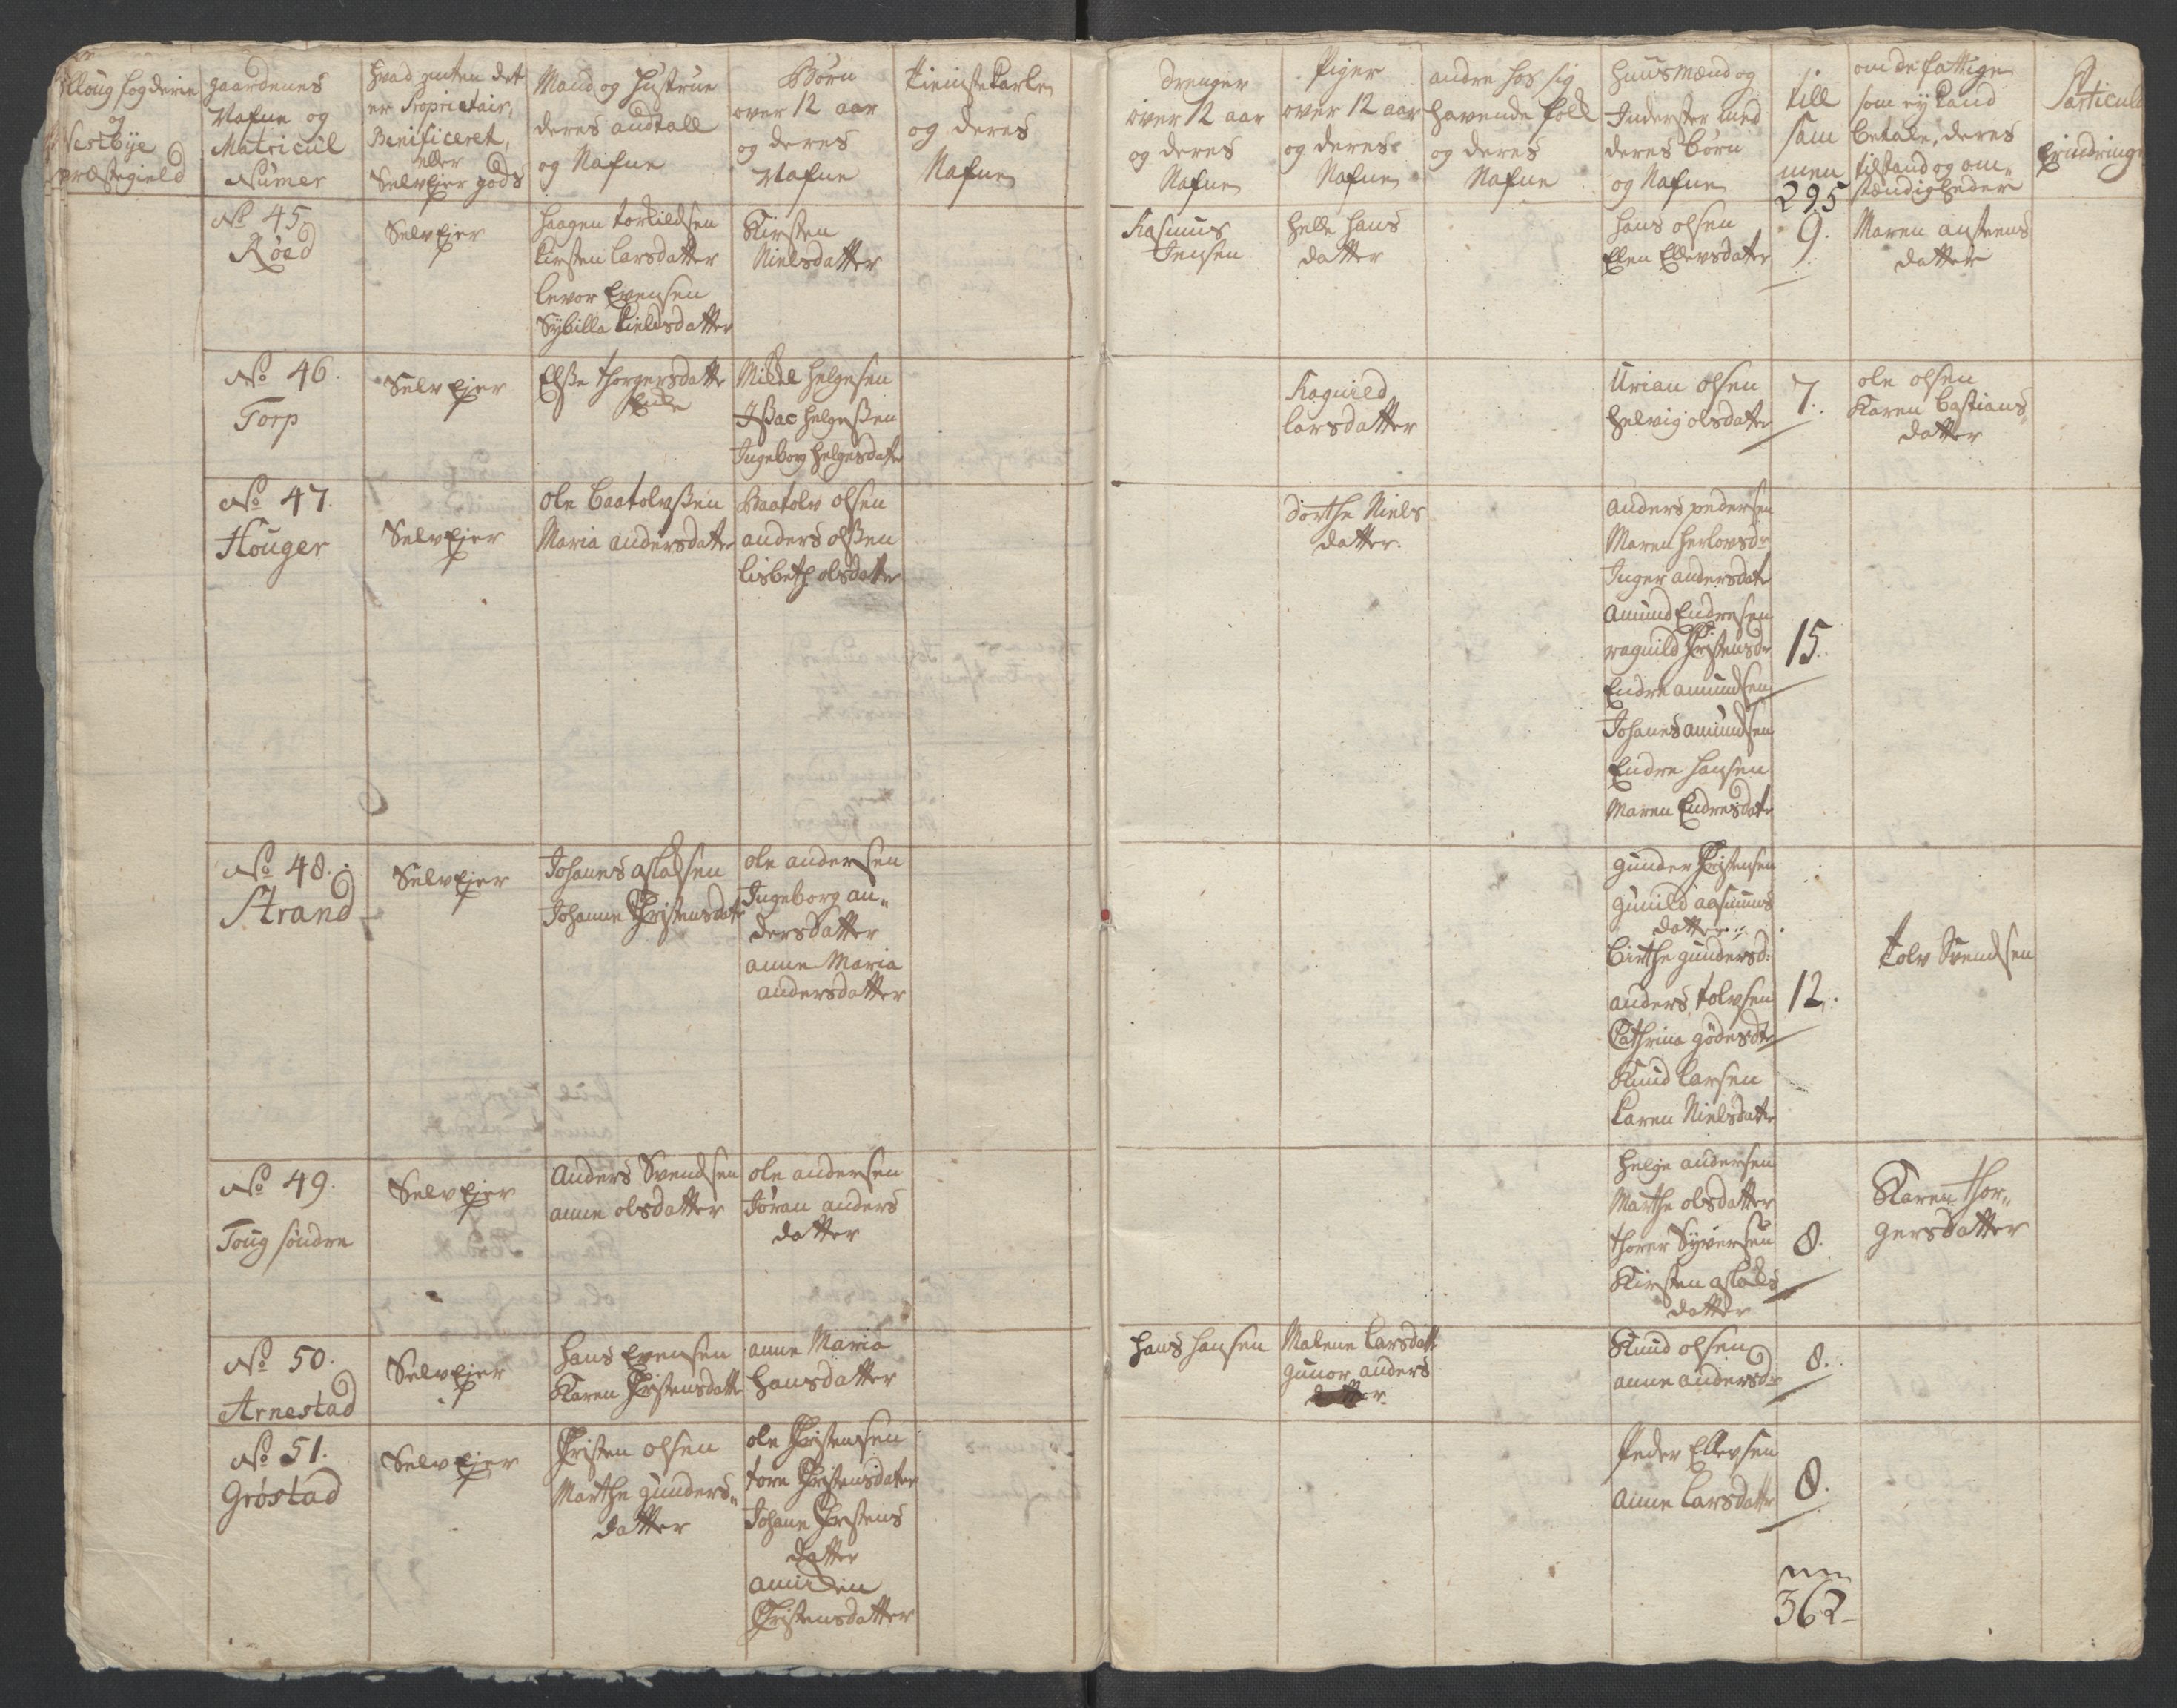 Folloug fogderie
og
Westbye
præstegield
gaardenes
Nafne og
Matricul
Numer
hvad enten det
er Proprietair,
Benificeret,
eller
Selvejer gods
Mand og Hustrue
deres andtall
og Nafne
Børn
over 12 aar
og deres
Nafne
Tienistekarle
og deres
Nafne
Drenger
over 12 aar
og deres
Nafne
Piger
over 12 aar
og deres
Nafne
andre hos sig
havende folk
og deres
Nafne
Huusmænd og
Inderster med
deres børn
og Nafne
till
sam
men
295
om de fattige
som ey kand
betale, deres
tilstand og om„
stændigheder
Particul
Erindringe
No 45
Røed
Selvejer
Haagen torkildsen
Kirsten Larsdatter
Levor Evensen
Sybilla Kieldsdatter
Kirsten
Nielsdatter
Rasmus
Jensen
Helle Hans
datter
Hans olsen
Elen Ellevsdater
9.
Maren anstens
datter
No 46.
Torp
Selvejer
Elße thorgersdatter
Enke
Mikkel Helgesen
Ißac Helgeßen
Ingeborg Helgesdater
Ragnild
Larsdatter
Urian olsen
Helvig olsdater
7.
ole olsen
Karen Bastians
datter
No 47.
Houger
Selvejer
ole Baatolvßen
Maria andersdater
Baatolv olsen
anders olßen
Lisbeth olsdatter
Dorthe Niels
datter.
anders pedersen
Maren Herlovsdr
Inger andersdater
Amund Endresen
ragnild Christensdr
Endre amundsen
Johanes amundsen
Endre Hansen
Maren Endresdater
15.
No 48.
Strand
Selvejer
Johanes aslaksen
Johanne Christensdater
ole andersen
Ingeborg an„
dersdatter
anne Maria
andersdatter
gunder Christensen
gunild aasmunds
datter
Birthe gundersd:
anders tolvsen
Cathrina gødesdtr
Knud Larsen
Karen Nielsdater
12.
Tolv Svendsen
No 49.
Toug søndre
Selvejer
Anders Svendsen
anne olsdatter
ole andersen
Jøran anders
datter
Helge andersen
Marthe olsdatter
thorer Syversen
Kirsten aslaks
datter
8.
Karen Thor„
gersdatter
No 50.
Arnestad
Selvejer
Hans Evensen
Karen Christensdatter
anne Maria
Hansdatter
Hans Hansen
Malene Larsdatter
gunor anders
datter.
Knud olsen
anne andersdr
8.
No 51.
Grøstad
Selvejer
Christen olsen
Marthe gunders„
datter
ole Christensen
tore Christensdater
Johane Christens
datter
Christensdatter
Peder Ellevsen
Anne Larsdatter
8.
362